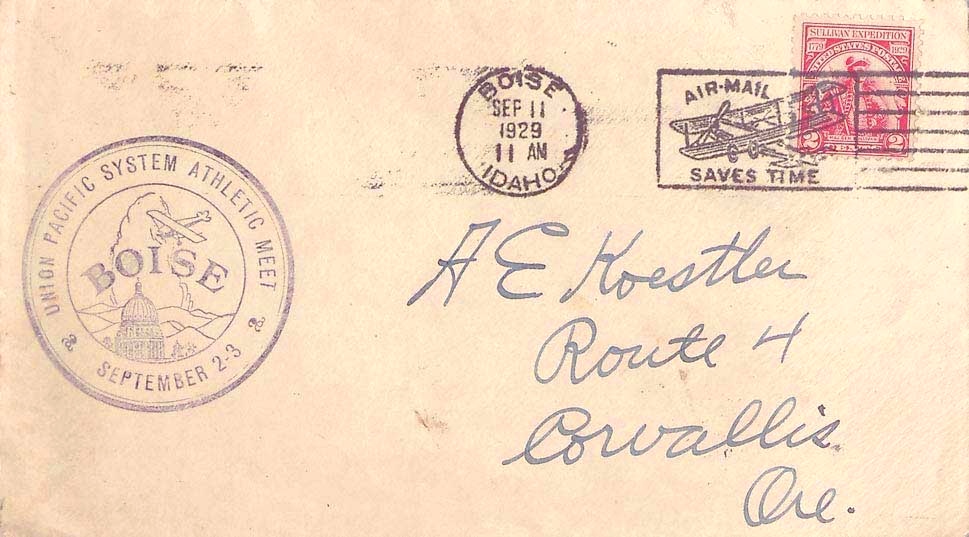 SULLIVAN EXPEDITION
1779 1929
UNITED STATES POSTAGE
2 CENTS 2
BOISE
SEP 11
1929
11 AM
IDAHO
AIR-MAIL
SAVES TIME
UNION PACIFIC SYSTEM ATHLETIC MEET
BOISE
SEPTEMBER 2-3
A E Koestler
Route 4
Corvallis
Ore.